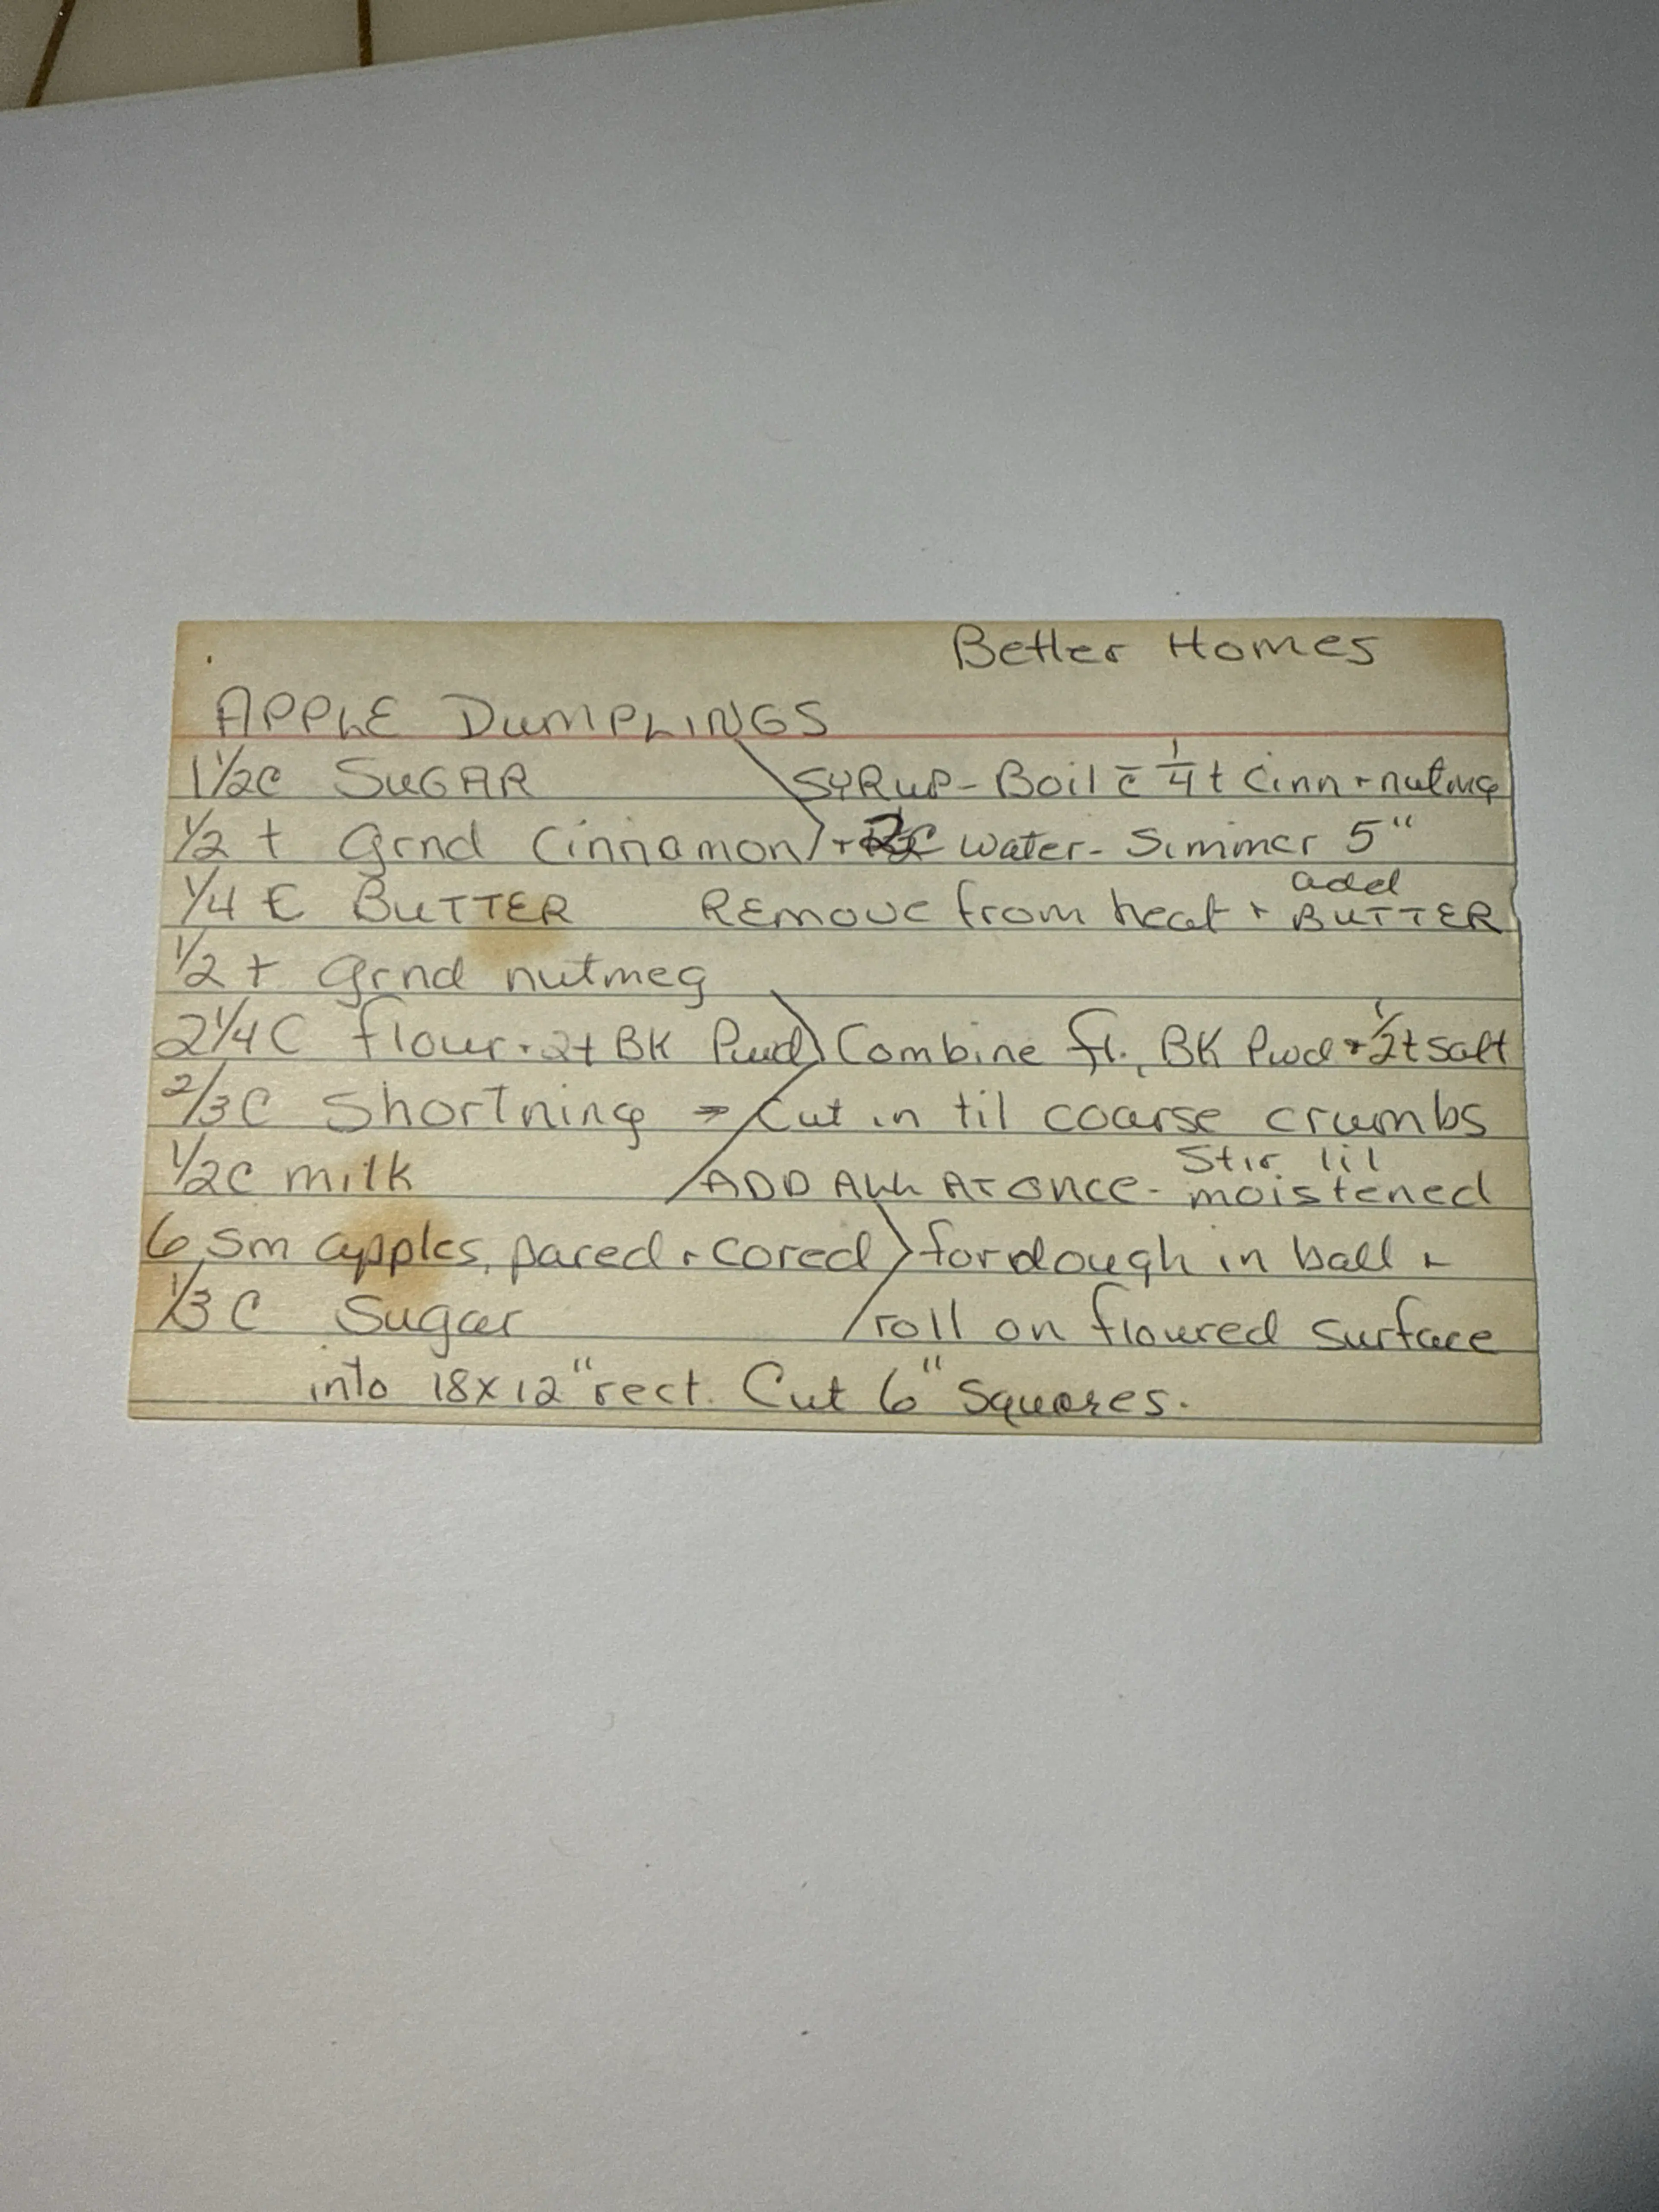 Better Homes
APPLE DUMPLINGS
1 1/2c SUGAR SYRUP - Boil c̄ 1/4 t Cinn + nutmg
1/2 t Grnd Cinnamon + 2c water - Simmer 5"
1/4 C BUTTER REMOVE from heat + add BUTTER
1/2 t Grnd nutmeg
2 1/4 C flour + 2t BK Pwd Combine fl., BK Pwd + 1/2t salt
2/3 C Shortning → Cut in til coarse crumbs
1/2c milk ADD ALL AT ONCE - Stir til moistened
6 sm apples, pared + cored for dough in ball +
1/3 C Sugar roll on floured surface
into 18x12" rect. Cut 6" squares.